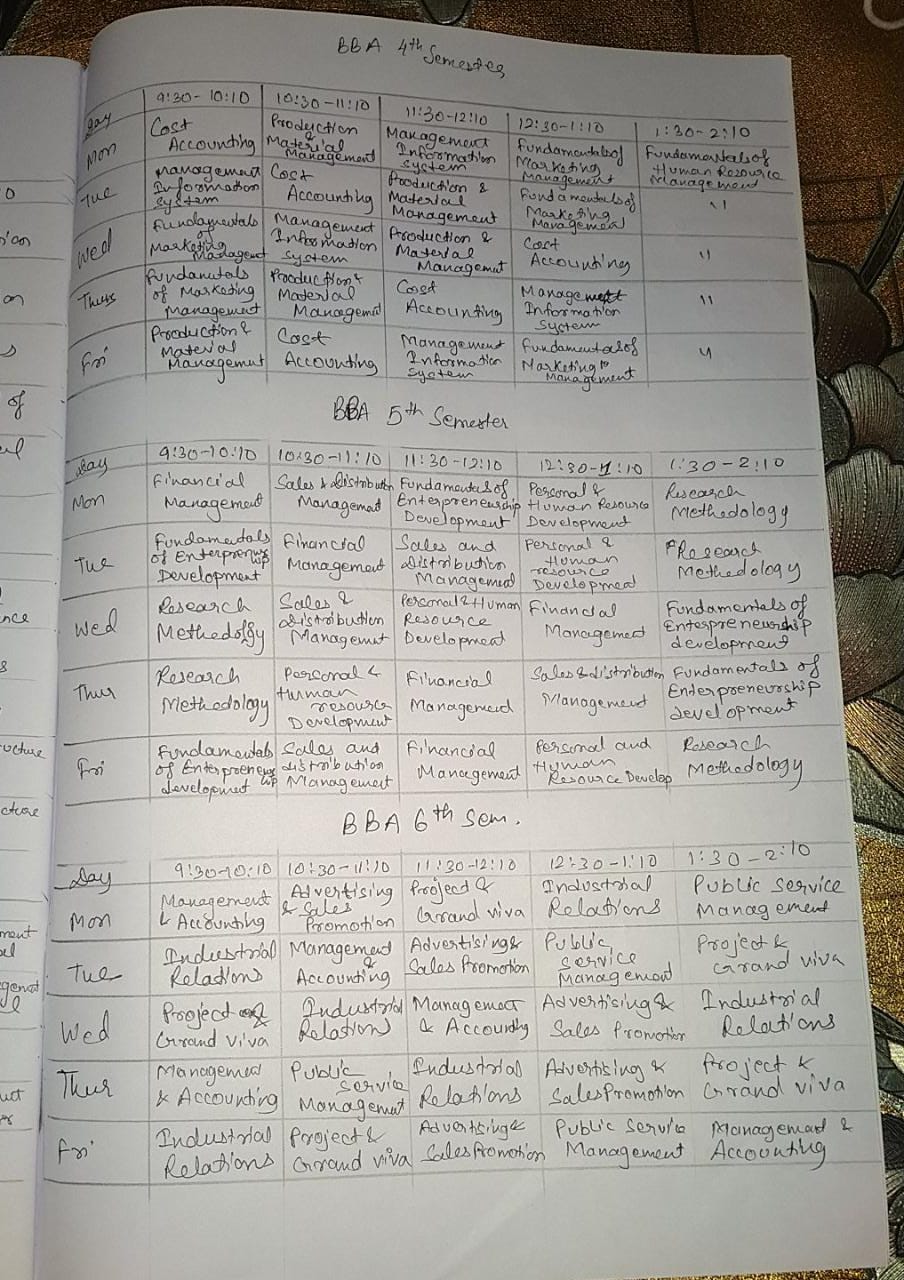 BBA 4th Semester
Day 9:30-10:10 10:30-11:10 11:30-12:10 12:30-1:10 1:30-2:10
Mon Cost Accounting Production & Material Management Management Information System Fundamentals of Marketing Management Fundamentals of Human Resource Management
Tue Management Information System Cost Accounting Production & Material Management Fundamentals of Marketing Management "
Wed Fundamentals of Marketing Management Management Information System Production & Material Management Cost Accounting "
Thurs Fundamentals of Marketing Management Production & Material Management Cost Accounting Management Information System "
Fri Production & Material Management Cost Accounting Management Information System Fundamentals of Marketing Management "
BBA 5th Semester
Day 9:30-10:10 10:30-11:10 11:30-12:10 12:30-1:10 1:30-2:10
Mon Financial Management Sales & Distribution Management Fundamentals of Enterpreneurship Development Personal & Human Resource Development Research Methedology
Tue Fundamentals of Enterpreneurship Development Financial Management Sales and Distribution Management Personal & Human resource Development Research Methedology
Wed Research Methedology Sales & Distribution Management Personal & Human Resource Development Financial Management Fundamentals of Enterpreneurship development
Thur Research Methedology Personal & Human resource Development Financial Management Sales & distribution Management Fundamentals of Enterpreneurship development
Fri Fundamentals of Enterpreneurship development Sales and distribution Management Financial Management Personal and Human Resource Develop Research Methedology
BBA 6th Sem.
Day 9:30-10:10 10:30-11:10 11:30-12:10 12:30-1:10 1:30-2:10
Mon Management & Accounting Advertising & Sales Promotion Project & Grand viva Industrial Relations Public Service Management
Tue Industrial Relations Management & Accounting Advertising & Sales Promotion Public Service Management Project & Grand viva
Wed Project & Grand viva Industrial Relations Management & Accounting Advertising & Sales Promotion Industrial Relations
Thur Management & Accounting Public Service Management Industrial Relations Advertising & Sales Promotion Project & Grand viva
Fri Industrial Relations Project & Grand viva Advertising & Sales Promotion Public Service Management Management & Accounting